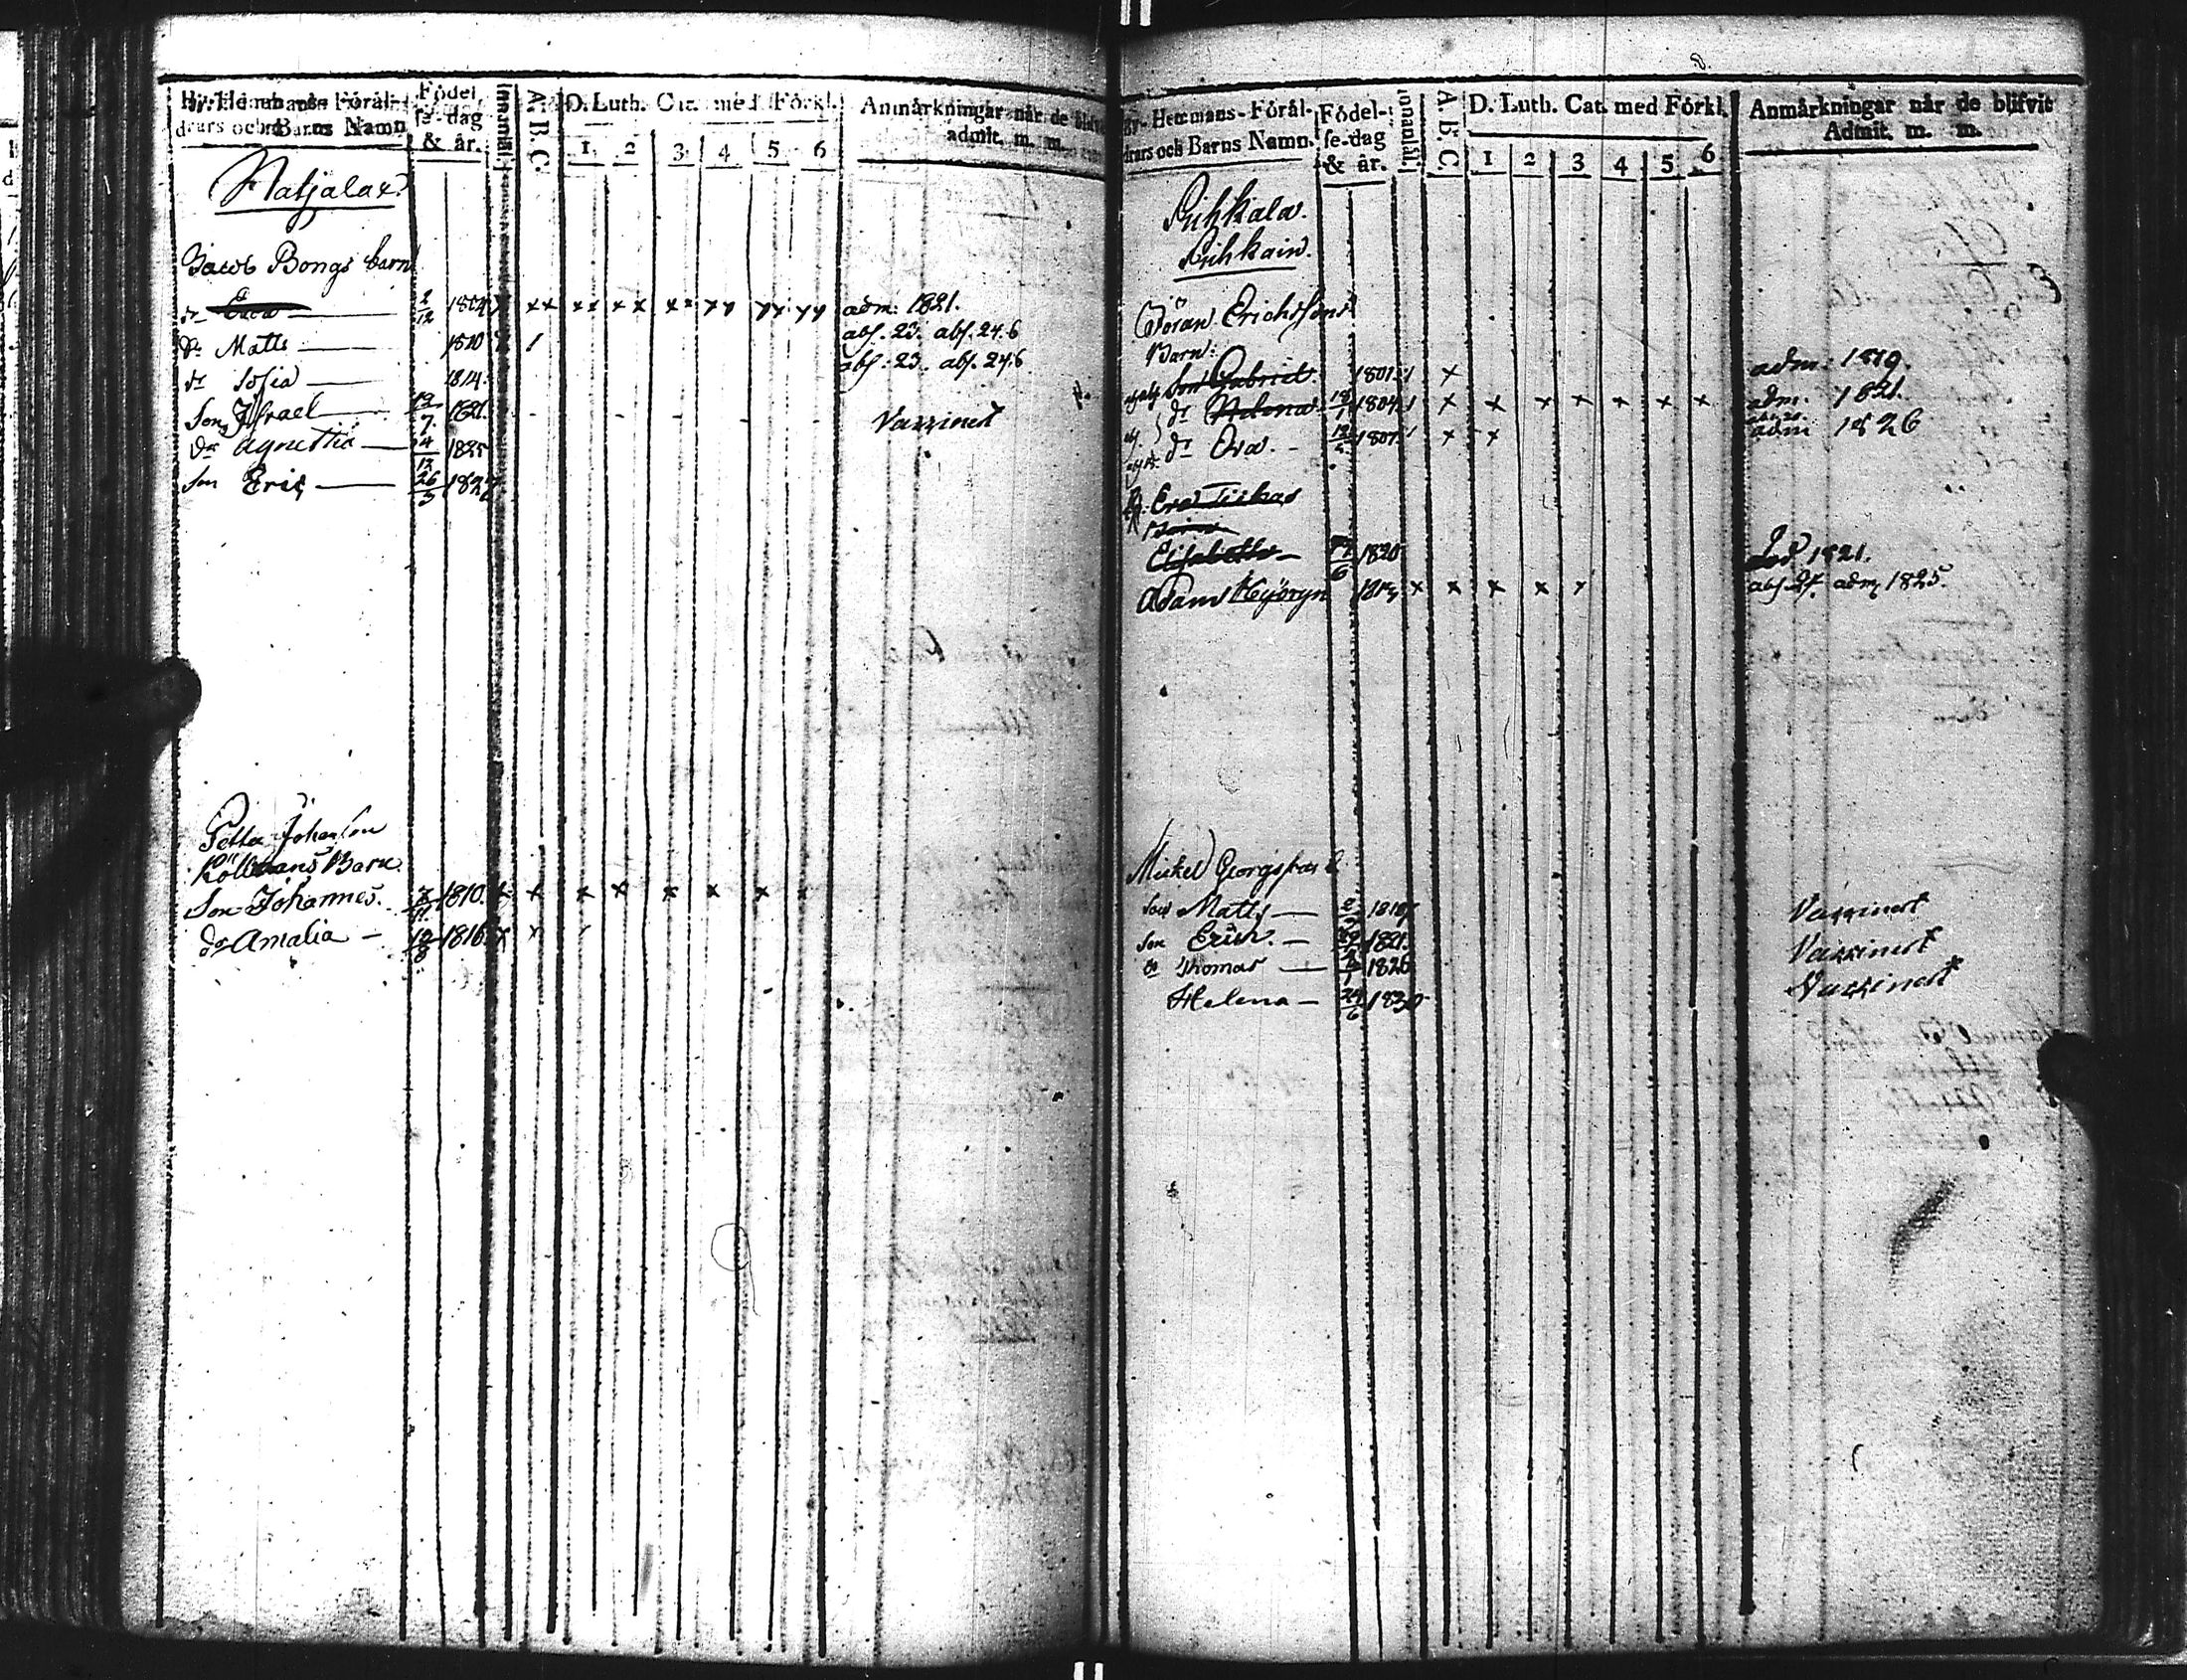 By- Hemmans- Föräl-
drars och Barns Namn
Födel
se-dag
& år.
Innanläs.
A. B. C.
D. Luth. Cat. med Förkl.
1. 2 3. 4 5. 6
Anmärkningar när de blif
admit. m. m.
Natjalax
Jacob Bongs barn
dr Caisa 2/12 1804 xx xx xx xx xx xx xx adm: 1821.
dr Matts 1810 abs. 23. abs. 24. 6
dr Sofia 1814. abs: 23. abs. 24. 6
Son Israel 12/7. 1821. Vaxxinert
dr Agnetta 4/12 1825
Son Eric 26/3 1827
Petter Johanson
Barn.
Son Johannes. 1810. x x x x x x x x
dr Amalia 1816 x x
By- Hemmans- Föräl-
drars och Barns Namn.
Födel-
se-dag
& år.
Innanläs.
A. B. C.
D. Luth. Cat. med Förkl.
1 2 3 4 5 6
Anmärkningar når de blifvit
Admit. m. m.
Pihkala.
Pihkain.
Göran Erichssons
Barn:
Son Gabriel. 1801 x adm: 1819.
dr Helena 1804 x x x x x x x adm. 1821.
dr Eva. 1807 x x adm 1826
Eva
Elisabetha 1820 Död 1821.
Adam x x x x x abs. 24. adm. 1825.
Mickel Georgssons
son Matts 1818 Vaxxinert
son Erich. 1821. Vaxxinert
dr Thomas 1826 Vaxxinert
Helena 24/6 1830